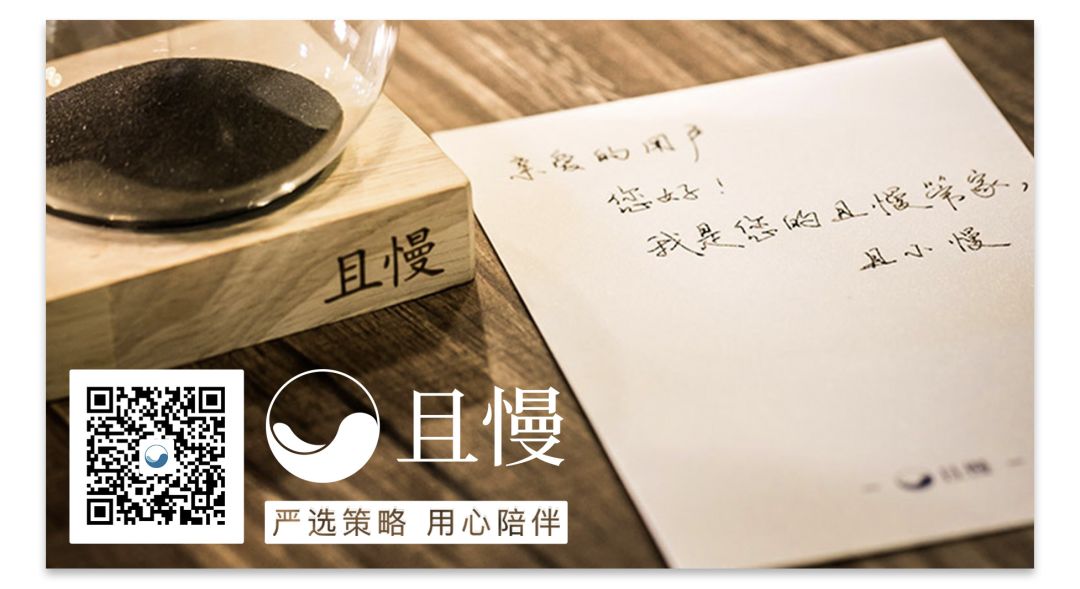 亲爱的用户
您好！
我是您的且慢管家，
且小慢
且慢
且慢
严选策略 用心陪伴
且慢